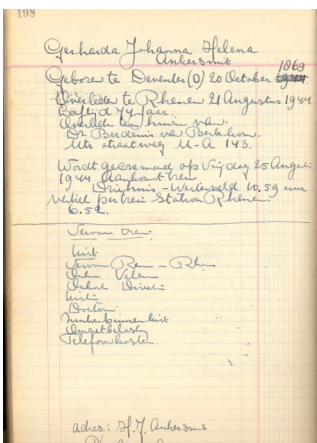 198
Gerharda Johanna Helena
Ankersmit
1869
Geboren te Deventer (O) 20 October 1944
Overleden te Rhenen 21 Augustus 1944
Leeftijd 74 jaar.
Overleden ten huize van
Dr Berdenis van Berlekom.
Utr straatweg U-A 143.
Wordt gecremeerd op Vrijdag 25 Augusti
1944 Aankomst trein
Driehuis-Westerveld 10.59 uur
Vertrek per trein Station Rhenen
6.52.
Vervoer trein
Kist
Vervoer Rhenen -
Velsen
Kist
Dokter
Zinken binnenkist
Omzetbelasting
Telefoonkosten.
adres: H.J. Ankersmit